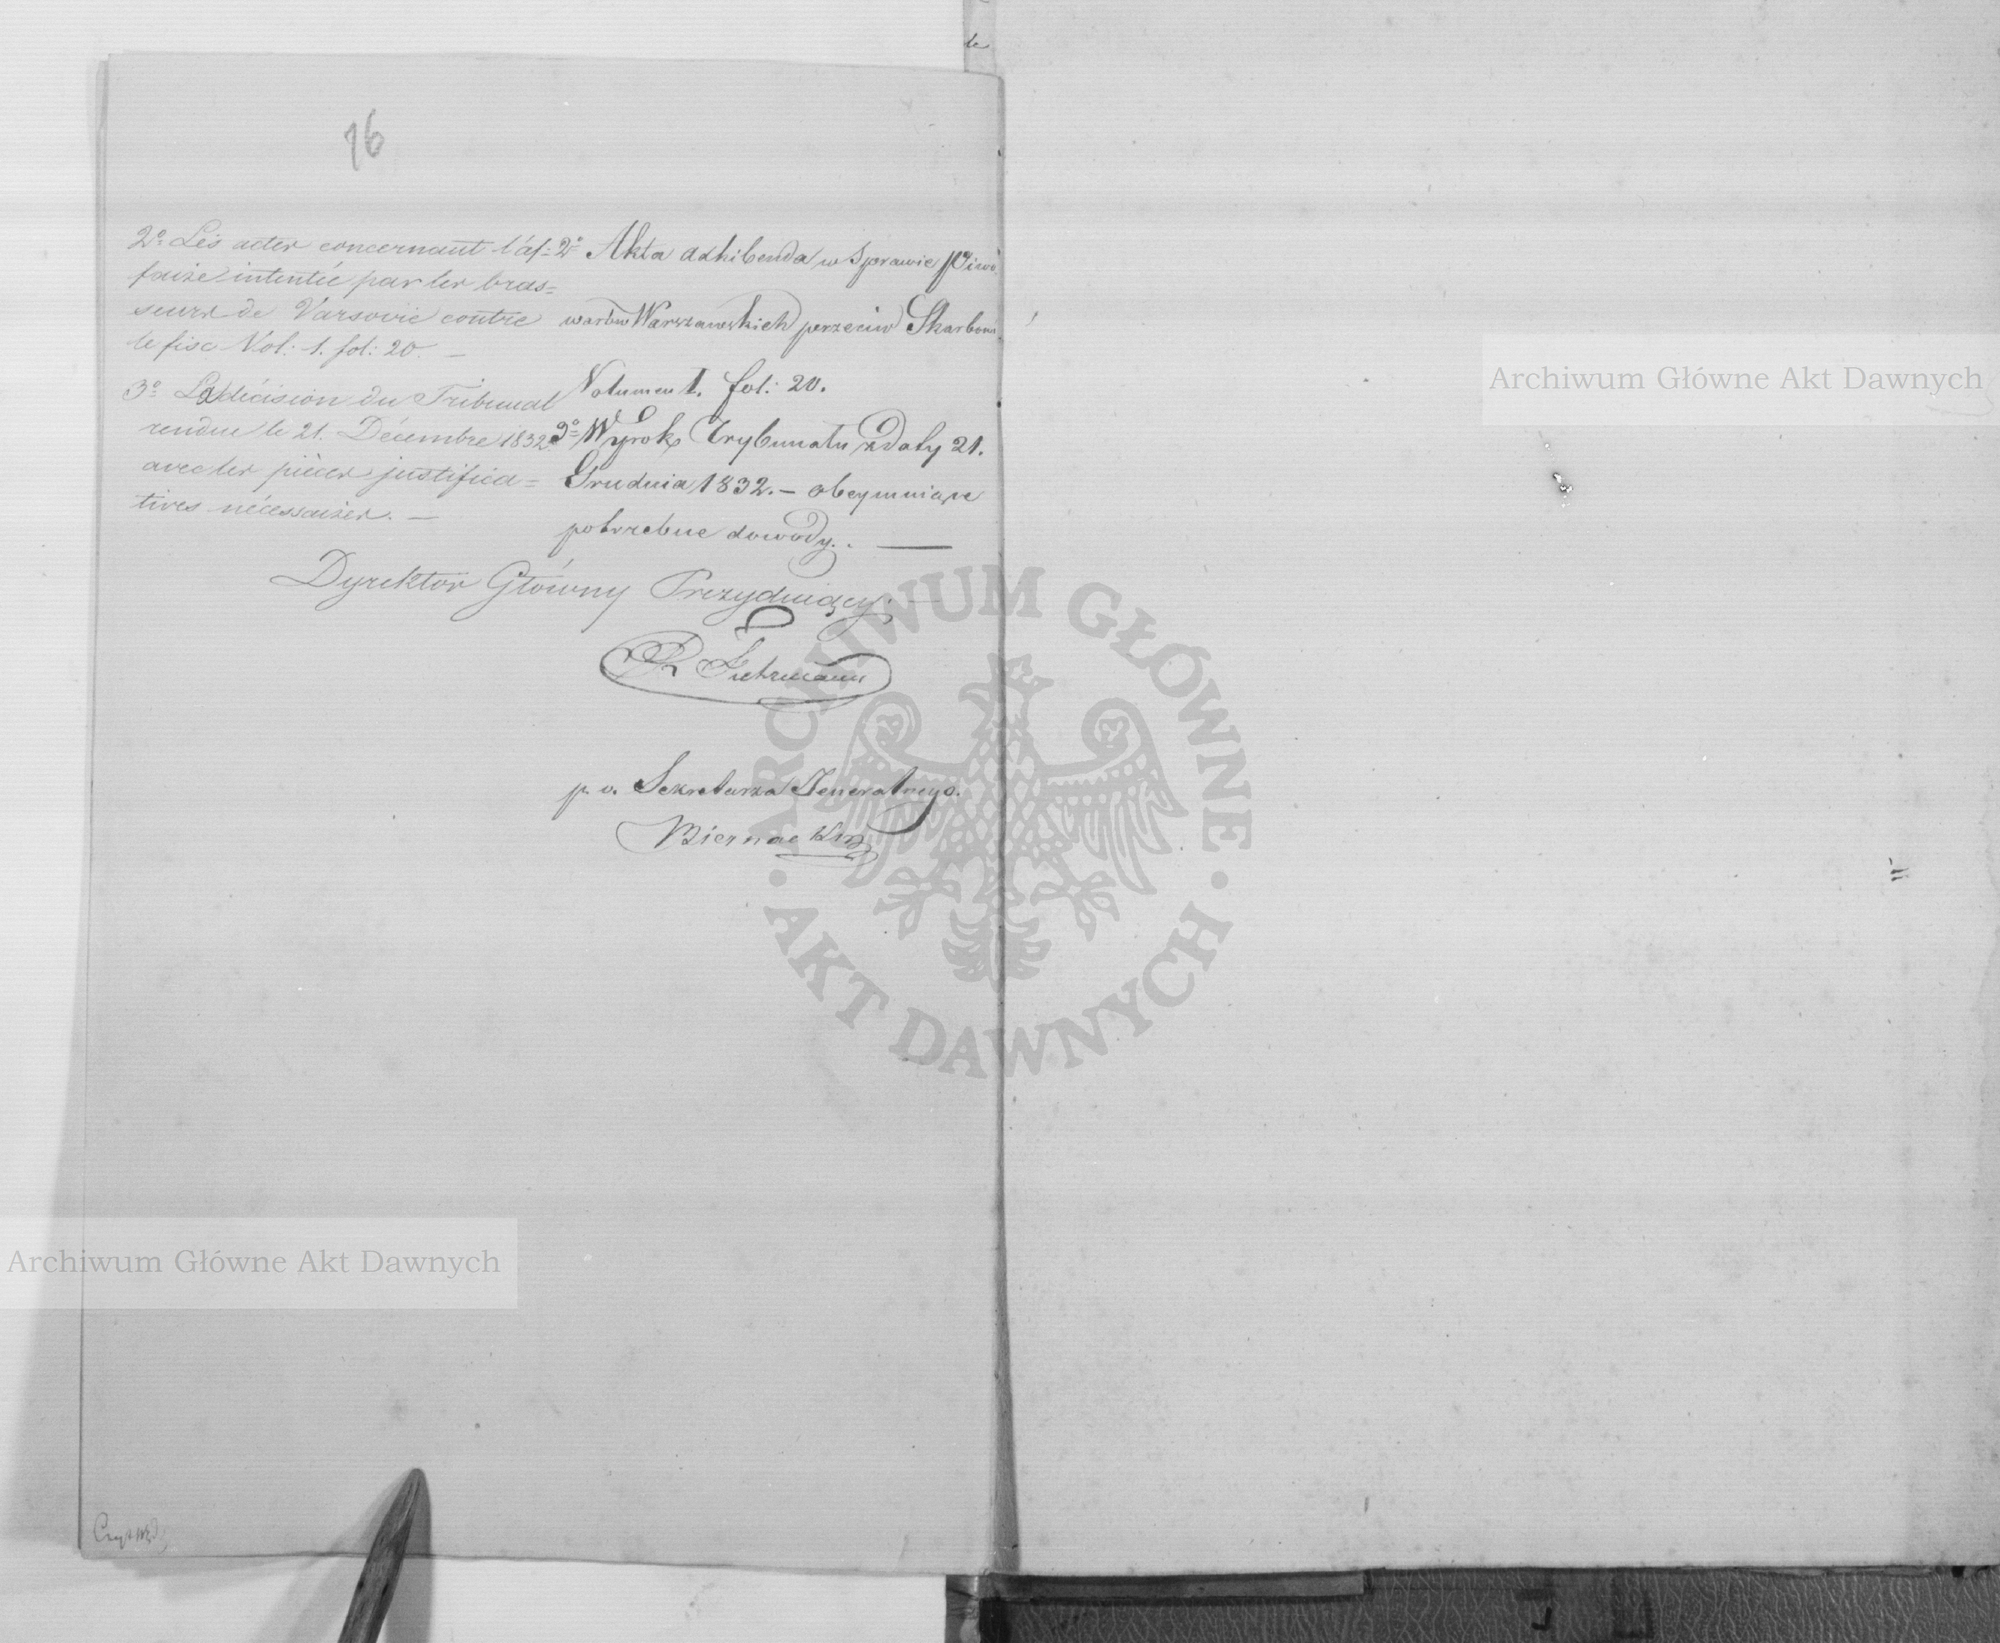 te
16
2º Les actes concernant l'áf=
faire intentée par les bras=
seurs de Varsovie contre
le fisc Vol: 1. fol: 20. —
3º La décision du Tribunal
rendue le 21. Décembre 1832
avec les pièces justifica=
tives nécessaires. —
2º Akta adhibenda w Sprawie Piwo
warów Warszawskich przeciw Skarbowi
Volumen 1. fol: 20.
3º Wyrok Trybunału z daty 21.
Grudnia 1832. — obeymuiące
potrzebne dowody. —
Dyrektor Główny Prezyduiący. —
R Fuhrmann
p. o. Sekretarza Jeneralnego.
Biernacki
Archiwum Główne Akt Dawnych
Archiwum Główne Akt Dawnych
ARCHIWUM GŁÓWNE · AKT DAWNYCH ·